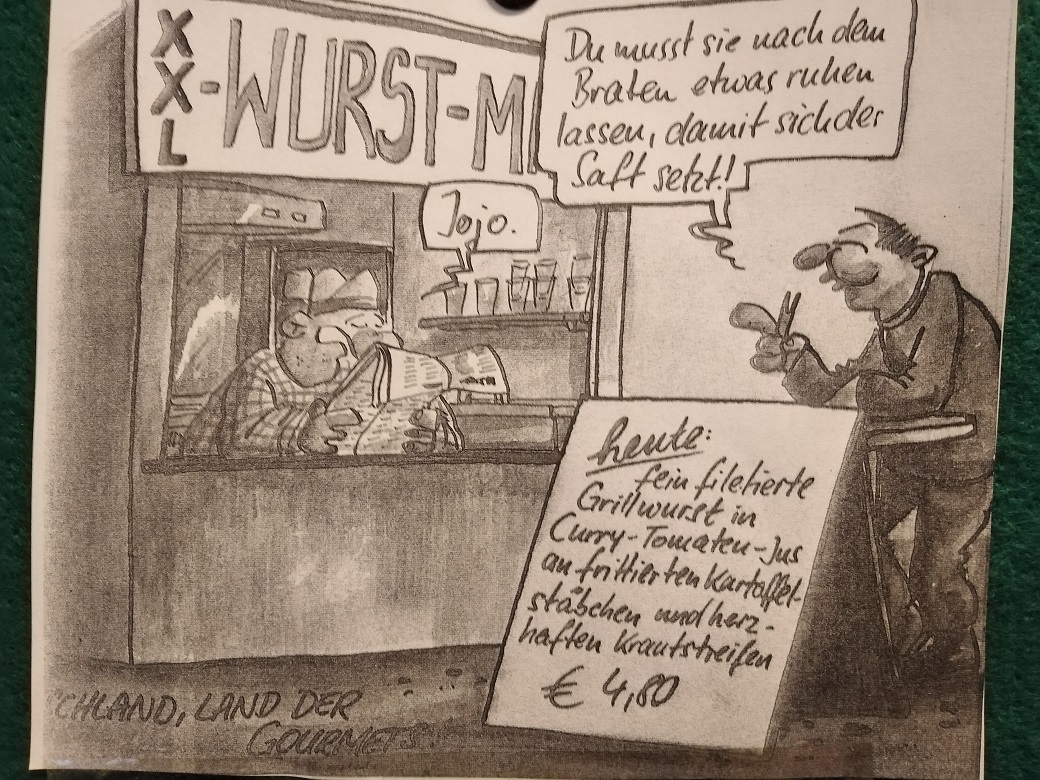 XXL-WURST-M
Du musst sie nach dem
Braten etwas ruhen
lassen, damit sich der
Saft setzt!
Jojo.
heute:
fein filetierte
Grillwurst in
Curry-Tomaten-Jus
an frittierten Kartoffel-
stäbchen und herz-
haften Krautstreifen
€ 4,80
CHLAND, LAND DER
GOURMETS.